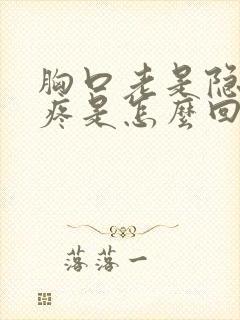 胸口老是隐
疼是怎麼回
落落一